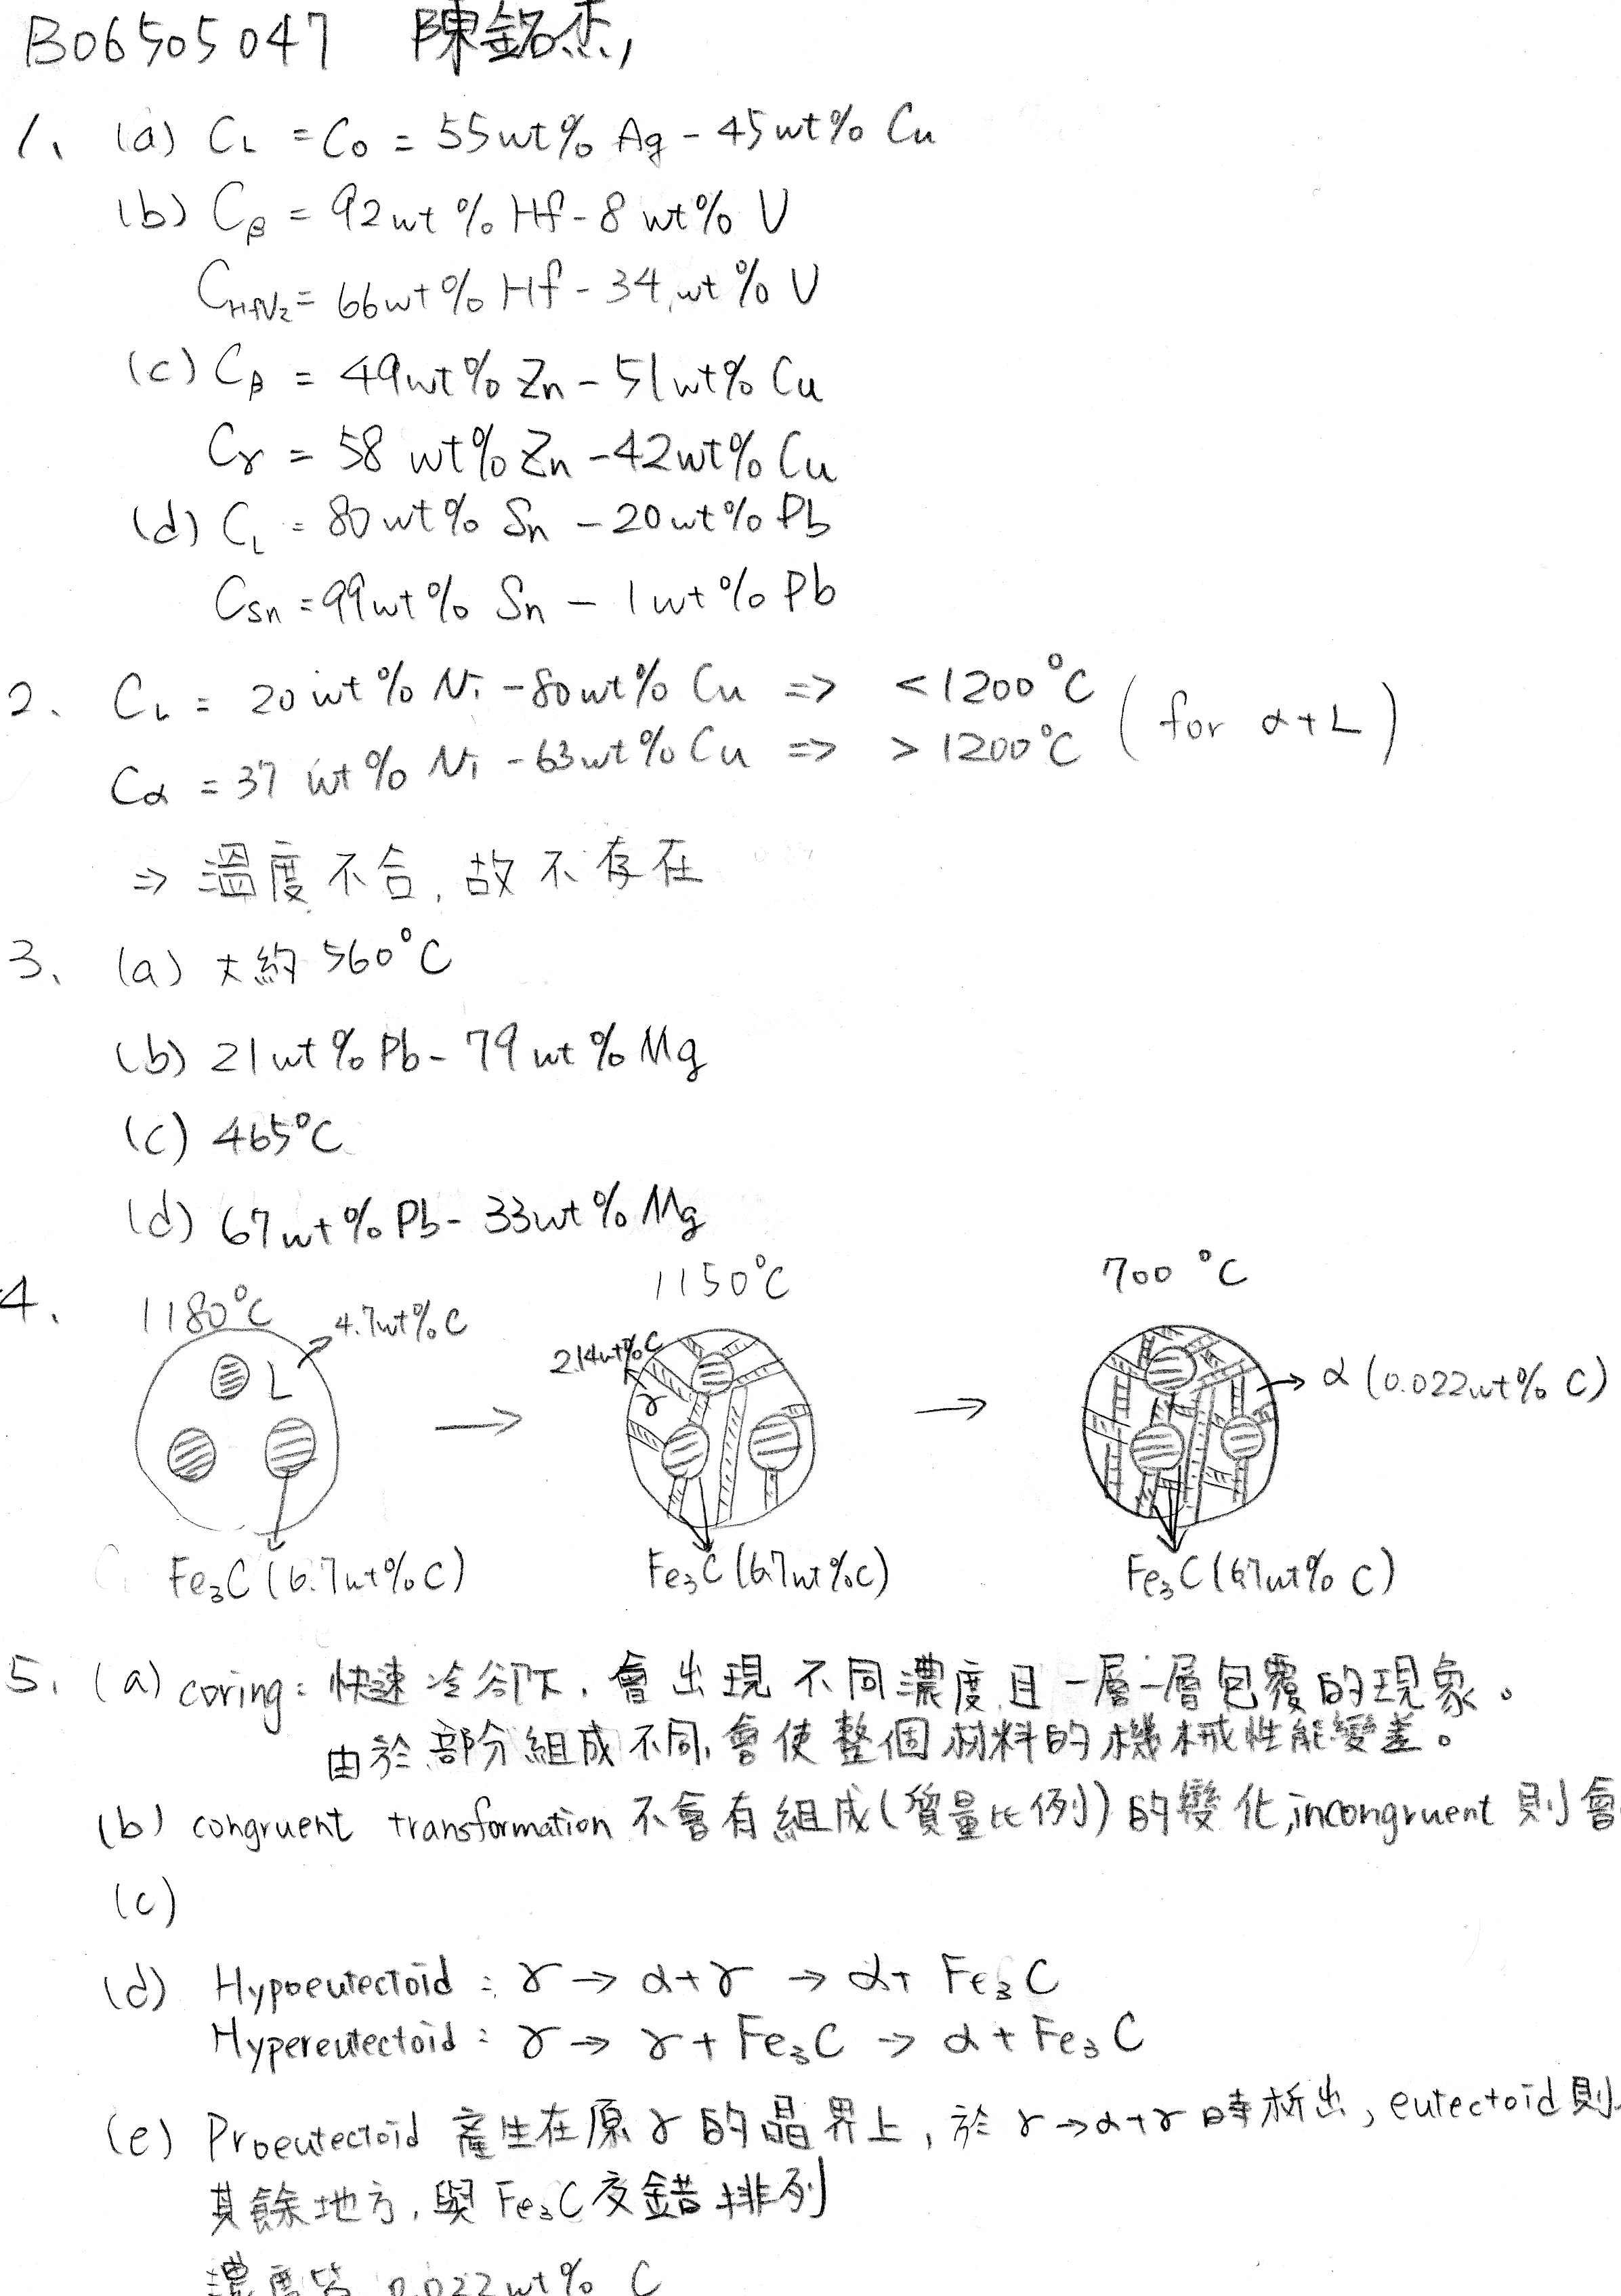 B06505047 陳銘杰
1、 (a) CL = C0 = 55wt% Ag - 45wt% Cu
(b) Cβ = 92wt% Hf - 8 wt% V
CHfV2 = 66wt% Hf - 34 wt% V
(c) Cβ = 49wt% Zn - 51wt% Cu
Cγ = 58 wt% Zn - 42wt% Cu
(d) CL = 80wt% Sn - 20wt% Pb
CSn = 99wt% Sn - 1wt% Pb
2、 CL = 20 wt% Ni - 80wt% Cu => < 1200°C
Cα = 37 wt% Ni - 63wt% Cu => > 1200°C (for α+L)
⇒ 溫度不合, 故不存在
3、 (a) 大約 560°C
(b) 21wt% Pb - 79wt% Mg
(c) 465°C
(d) 67wt% Pb - 33wt% Mg
4、 1180°C 1150°C 700 °C
4.7wt% C 2.14wt% C
L γ → → α (0.022wt% C)
Fe3C (6.7wt% C) Fe3C (6.7wt% C) Fe3C (6.7wt% C)
5、 (a) coring: 快速冷卻下, 會出現不同濃度且一層一層包覆的現象。
由於部分組成不同, 會使整個材料的機械性能變差。
(b) congruent transformation 不會有組成(質量比例)的變化, incongruent 則會
(c)
(d) Hypoeutectoid : γ → α+γ → α+ Fe3C
Hypereutectoid : γ → γ + Fe3C → α + Fe3C
(e) Proeutectoid 產生在原γ的晶界上, 於 γ→α+γ 時析出, eutectoid 則
其餘地方, 與 Fe3C 交錯排列
濃度皆 0.022wt% C